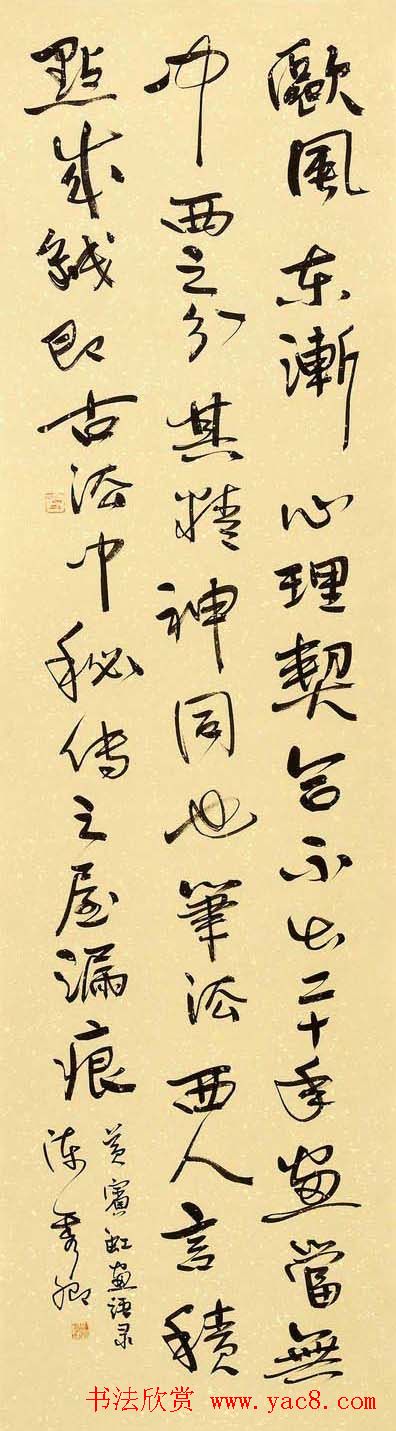 歐風东漸心理契合不出二十年畫當無
中西之分其精神同也筆法西人言積
點成綫即古法中秘传之屋漏痕
黄賓虹畫語录
陈秀卿
书法欣赏 www.yac8.com